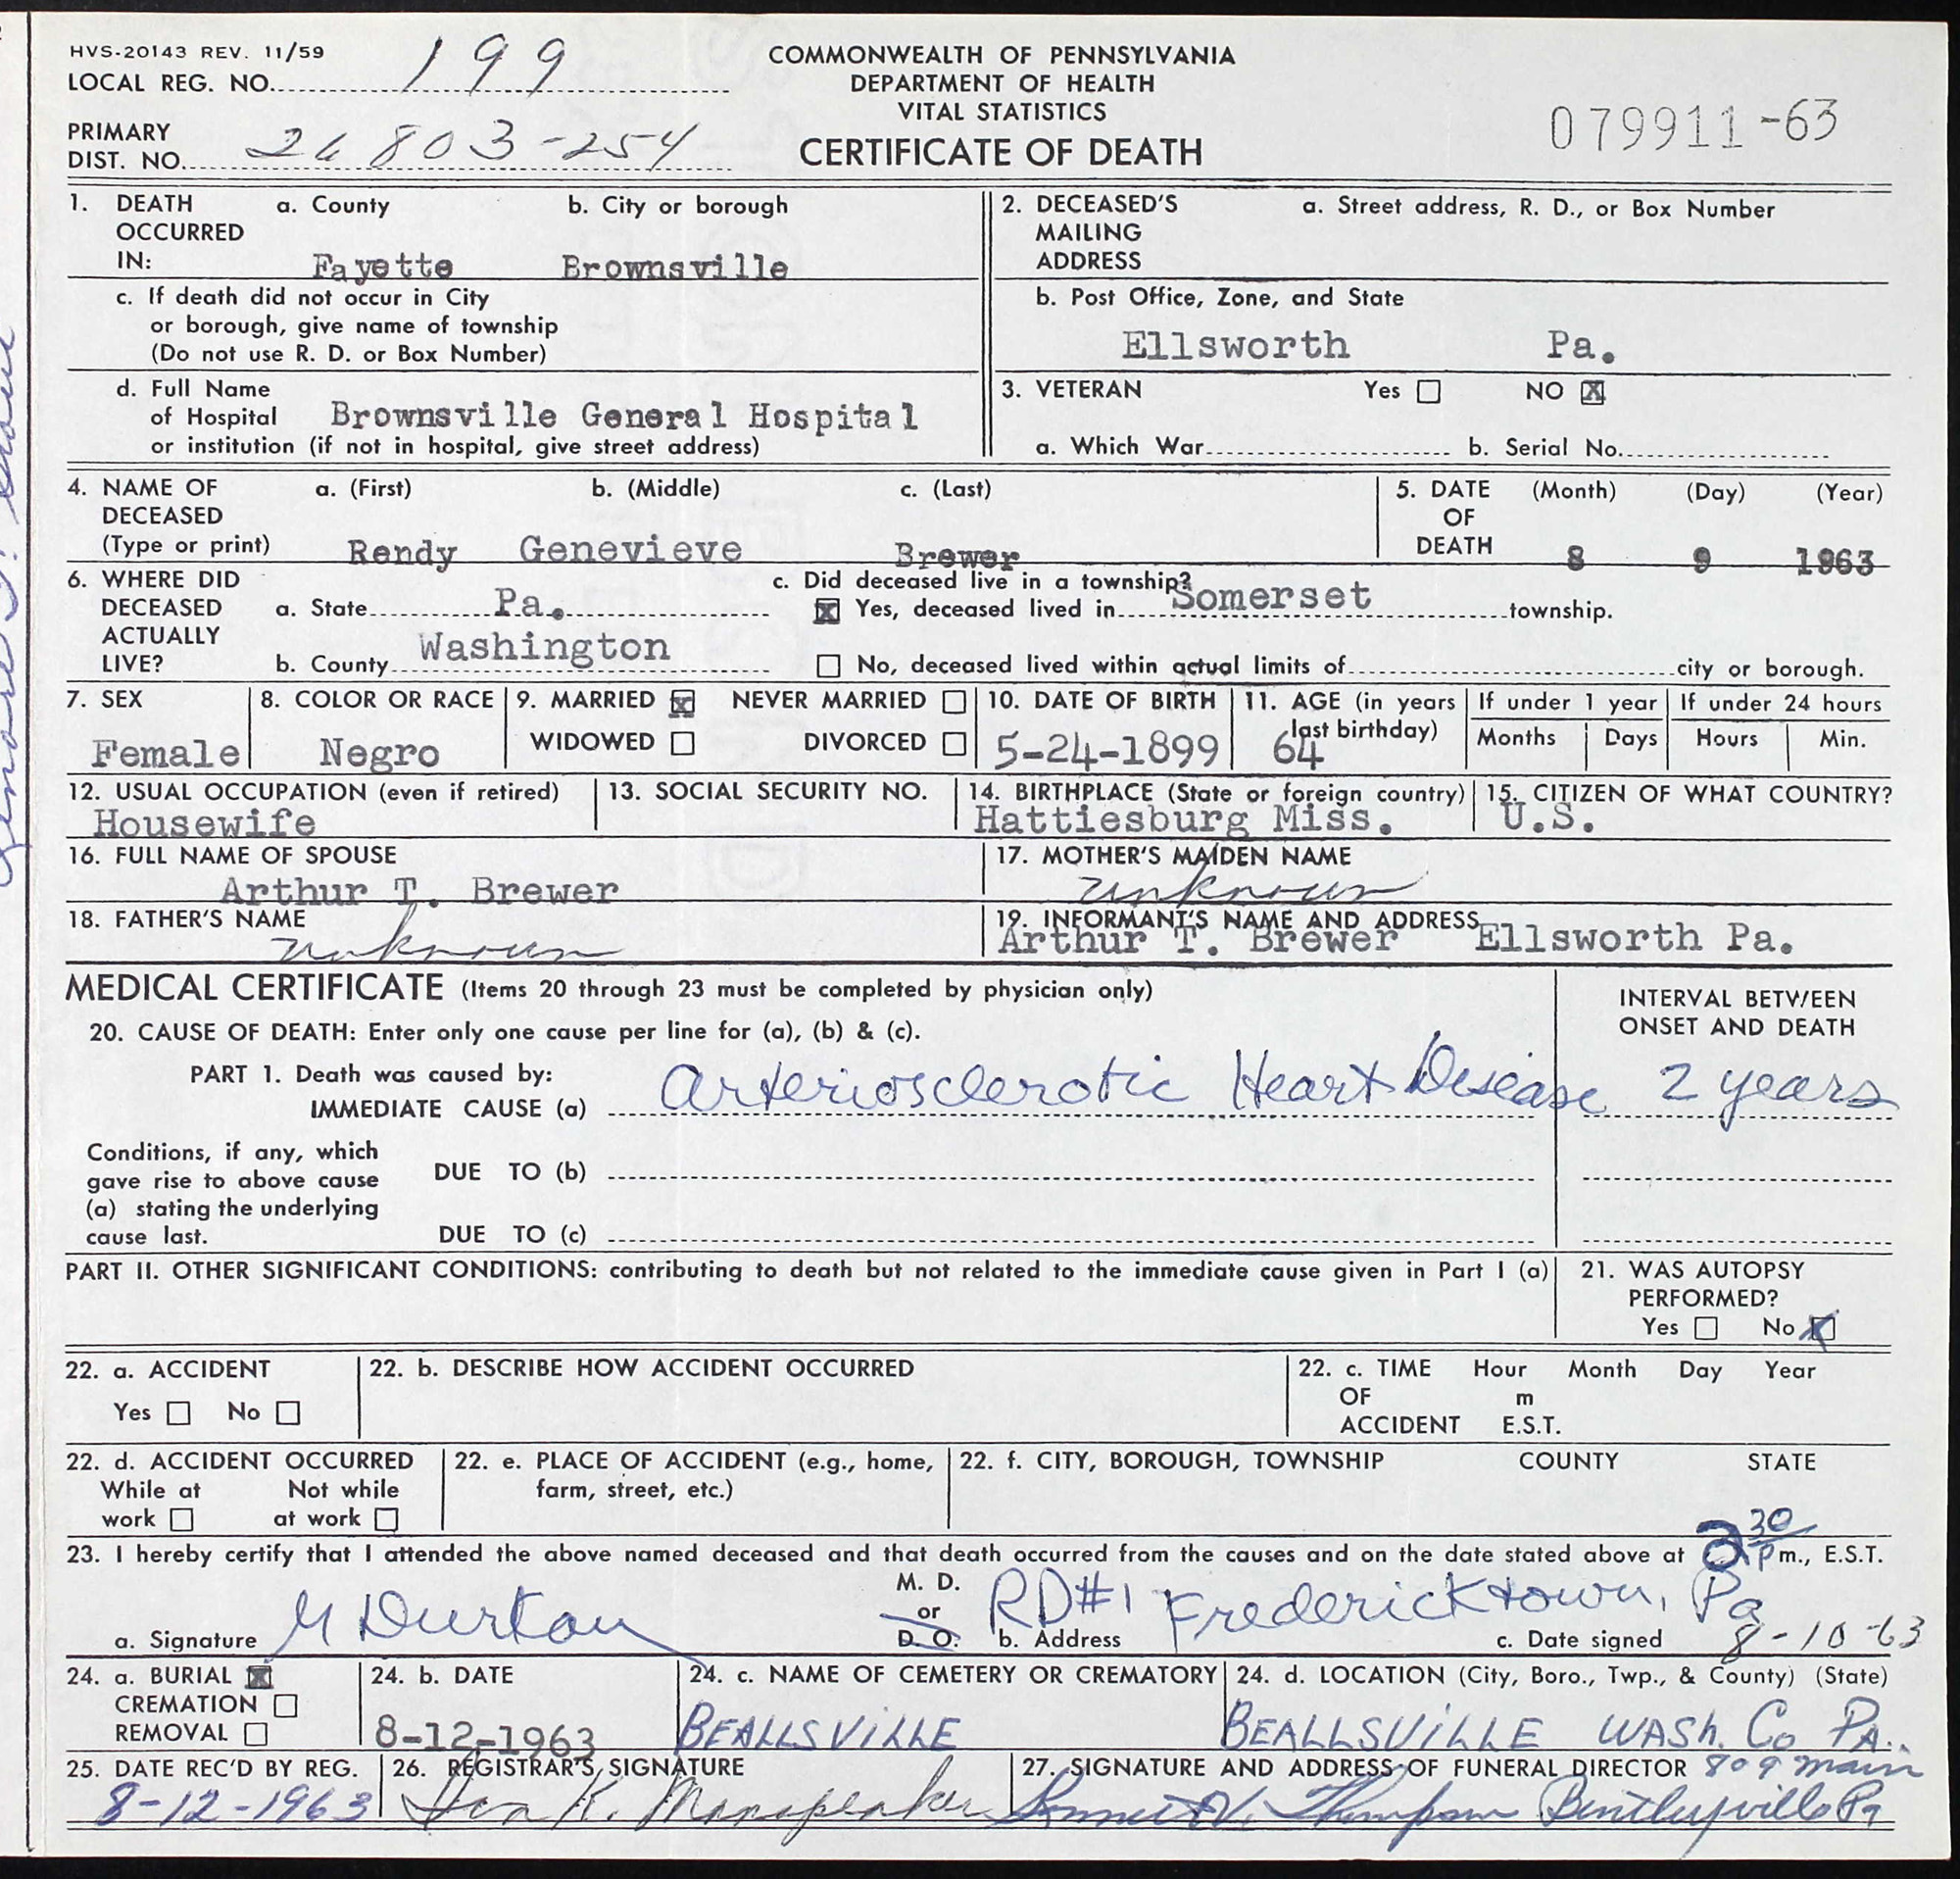 HVS-20143 REV. 11/59
LOCAL REG. NO. 199
COMMONWEALTH OF PENNSYLVANIA
DEPARTMENT OF HEALTH
VITAL STATISTICS
CERTIFICATE OF DEATH
079911-63
PRIMARY
DIST. NO. 26803-254
1. DEATH OCCURRED IN: a. County b. City or borough
Fayette Brownsville
c. If death did not occur in City
or borough, give name of township
(Do not use R. D. or Box Number)
d. Full Name
of Hospital Brownsville General Hospital
or institution (if not in hospital, give street address)
2. DECEASED'S MAILING ADDRESS a. Street address, R. D., or Box Number
b. Post Office, Zone, and State
Ellsworth Pa.
3. VETERAN Yes NO X
a. Which War b. Serial No.
4. NAME OF DECEASED (Type or print) a. (First) b. (Middle) c. (Last)
Rendy Genevieve Brewer
5. DATE OF DEATH (Month) (Day) (Year)
8 9 1963
6. WHERE DID DECEASED ACTUALLY LIVE?
a. State Pa.
b. County Washington
c. Did deceased live in a township?
X Yes, deceased lived in Somerset township.
No, deceased lived within actual limits of city or borough.
7. SEX
Female
8. COLOR OR RACE
Negro
9. MARRIED X NEVER MARRIED
WIDOWED DIVORCED
10. DATE OF BIRTH
5-24-1899
11. AGE (in years last birthday)
64
If under 1 year
Months Days
If under 24 hours
Hours Min.
12. USUAL OCCUPATION (even if retired)
Housewife
13. SOCIAL SECURITY NO.
14. BIRTHPLACE (State or foreign country)
Hattiesburg Miss.
15. CITIZEN OF WHAT COUNTRY?
U.S.
16. FULL NAME OF SPOUSE
Arthur T. Brewer
17. MOTHER'S MAIDEN NAME
unknown
18. FATHER'S NAME
unknown
19. INFORMANT'S NAME AND ADDRESS
Arthur T. Brewer Ellsworth Pa.
MEDICAL CERTIFICATE (Items 20 through 23 must be completed by physician only)
INTERVAL BETWEEN
ONSET AND DEATH
20. CAUSE OF DEATH: Enter only one cause per line for (a), (b) & (c).
PART 1. Death was caused by:
IMMEDIATE CAUSE (a) Arteriosclerotic Heart Disease 2 years
Conditions, if any, which
gave rise to above cause
(a) stating the underlying
cause last.
DUE TO (b)
DUE TO (c)
PART II. OTHER SIGNIFICANT CONDITIONS: contributing to death but not related to the immediate cause given in Part I (a)
21. WAS AUTOPSY
PERFORMED?
Yes No X
22. a. ACCIDENT
Yes No
22. b. DESCRIBE HOW ACCIDENT OCCURRED
22. c. TIME OF ACCIDENT Hour Month Day Year
m
E.S.T.
22. d. ACCIDENT OCCURRED
While at work Not while at work
22. e. PLACE OF ACCIDENT (e.g., home,
farm, street, etc.)
22. f. CITY, BOROUGH, TOWNSHIP COUNTY STATE
23. I hereby certify that I attended the above named deceased and that death occurred from the causes and on the date stated above at 2 30 P m., E.S.T.
a. Signature M Durkan
M. D.
or
D. O.
b. Address RD#1 Fredericktown, Pa
c. Date signed 8-10-63
24. a. BURIAL X
CREMATION
REMOVAL
24. b. DATE
8-12-1963
24. c. NAME OF CEMETERY OR CREMATORY
BEALLSVILLE
24. d. LOCATION (City, Boro., Twp., & County) (State)
BEALLSVILLE WASH. Co PA.
25. DATE REC'D BY REG.
8-12-1963
26. REGISTRAR'S SIGNATURE
K.
27. SIGNATURE AND ADDRESS OF FUNERAL DIRECTOR 809 Main
Thompson Bentleyville Pa